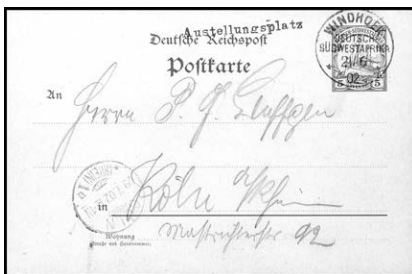 Austellungsplatz
Deutsche Reichspost
Postkarte
WINDHOEK
DEUTSCH-
SÜDWESTAFRIKA
21/6
02
5 5
An
Herrn P. J.
in Köln a/Rhein
Wohnung
Mastrichterstr 92